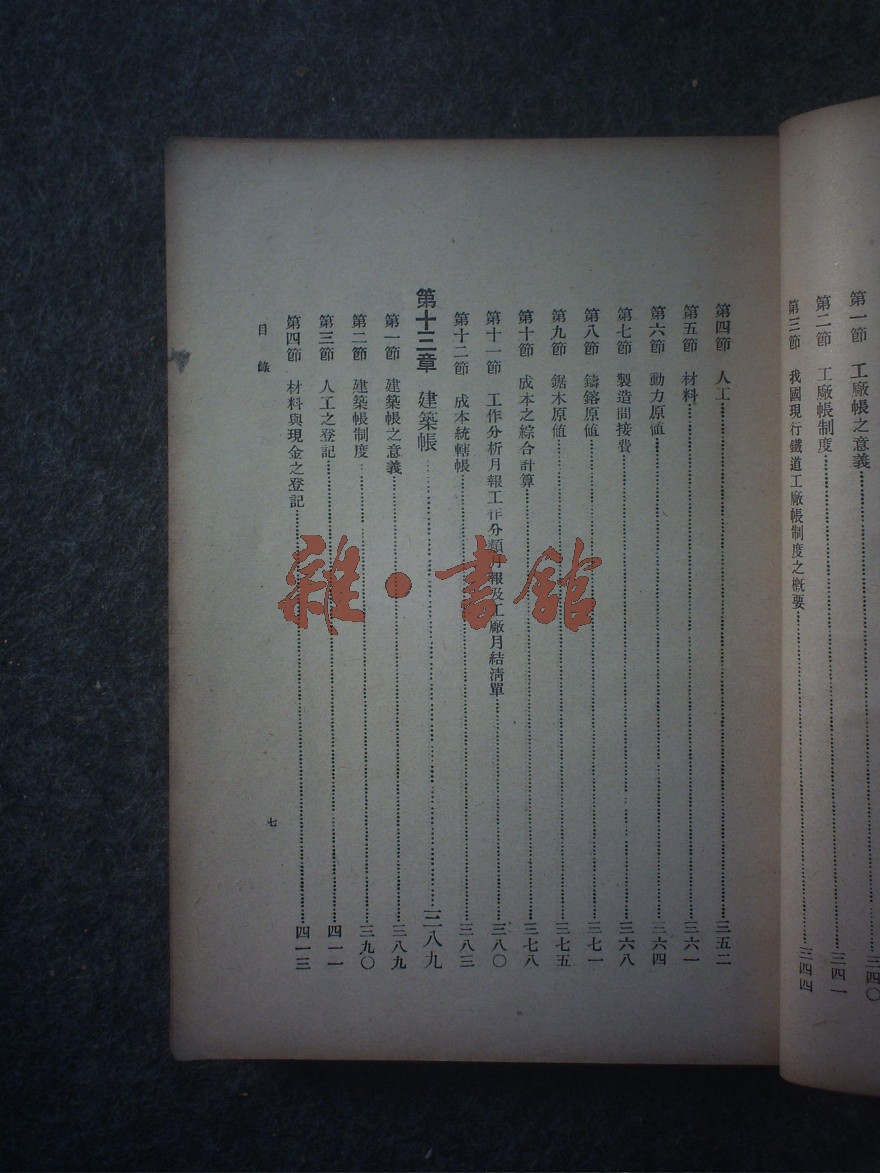 第一節 工廠帳之意義 三四〇
第二節 工廠帳制度 三四一
第三節 我國現行鐵道工廠帳制度之概要 三四四
第四節 人工 三五二
第五節 材料 三六一
第六節 動力原値 三六四
第七節 製造間接費 三六八
第八節 鑄鎔原値 三七一
第九節 鋸木原値 三七五
第十節 成本之綜合計算 三七八
第十一節 工作分析月報工作分類月報及工廠月結淸單 三八〇
第十二節 成本統轄帳 三八三
第十三章 建築帳 三八九
第一節 建築帳之意義 三八九
第二節 建築帳制度 三九〇
第三節 人工之登記 四一一
第四節 材料與現金之登記 四一三
目錄
七
雜·書館